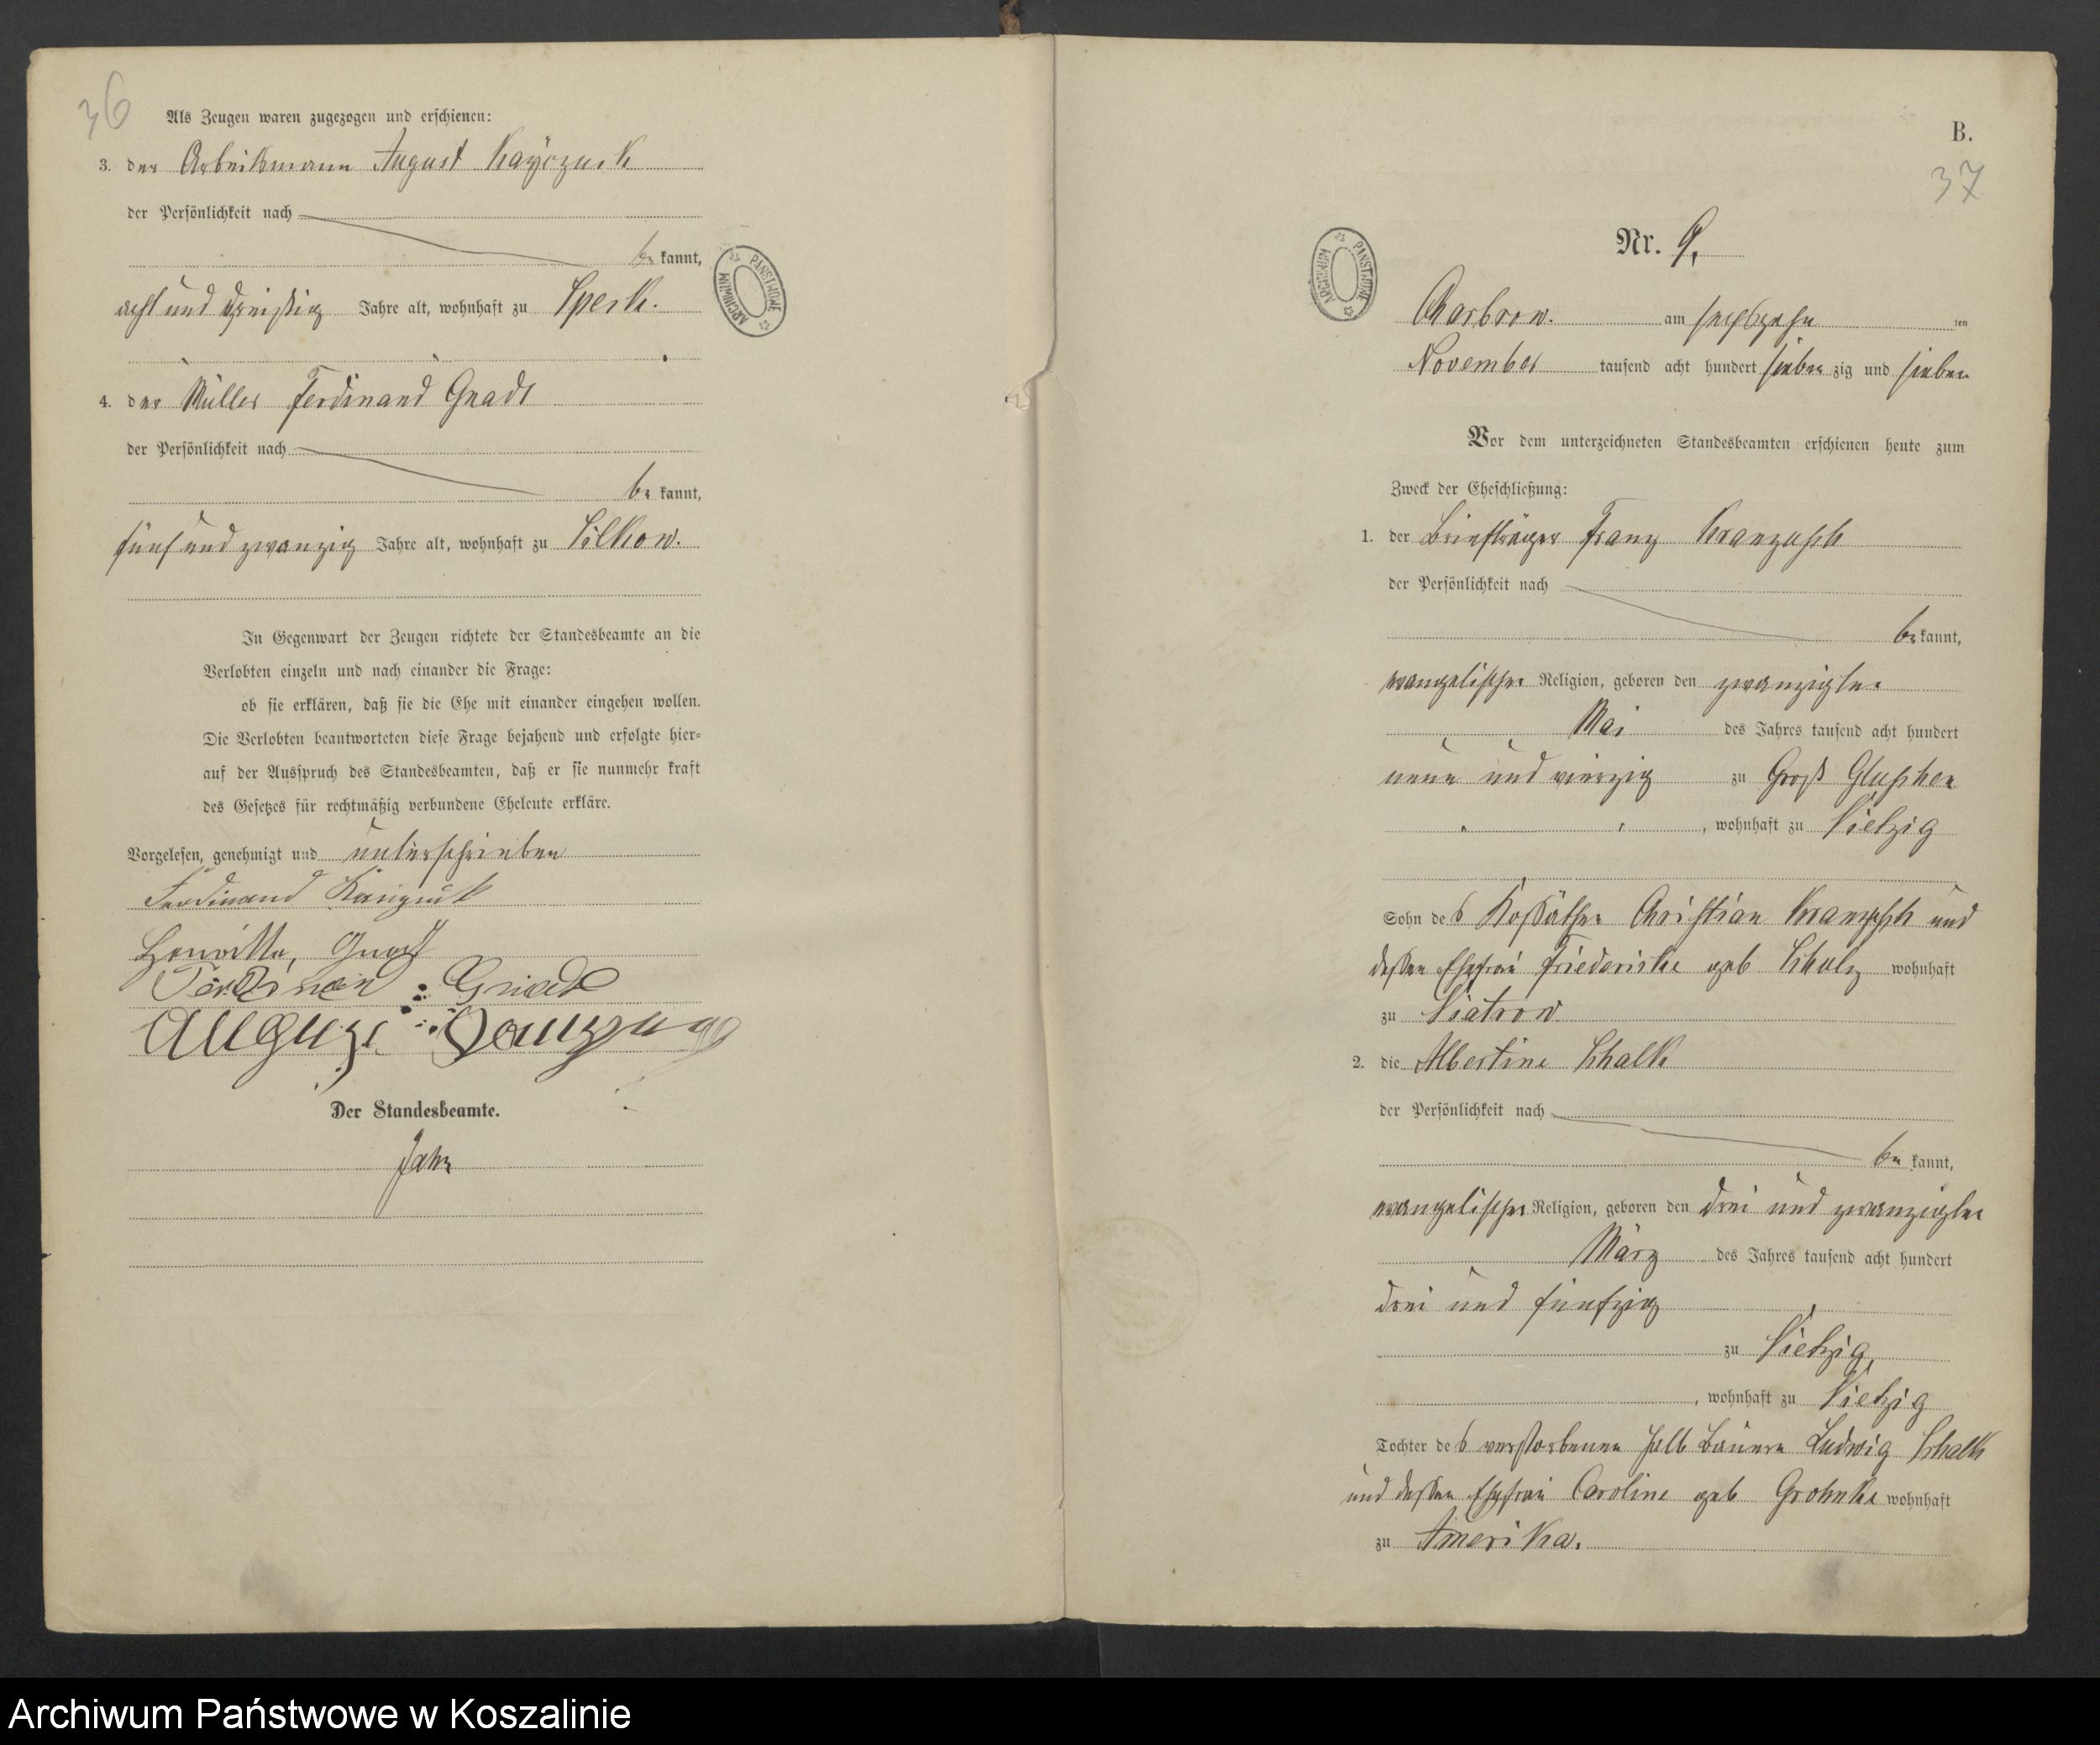 36
Als Zeugen waren zugezogen und erschienen:
3. der Arbeitsmann August Kayczuck
der Persönlichkeit nach
be kannt,
acht und dreißig Jahre alt, wohnhaft zu Speck.
4. der Müller Ferdinand Gnadt
der Persönlichkeit nach
be kannt,
fünf und zwanzig Jahre alt, wohnhaft zu Silkow.
In Gegenwart der Zeugen richtete der Standesbeamte an die
Verlobten einzeln und nach einander die Frage:
ob sie erklären, daß sie die Ehe mit einander eingehen wollen.
Die Verlobten beantworteten diese Frage bejahend und erfolgte hier-
auf der Ausspruch des Standesbeamten, daß er sie nunmehr kraft
des Gesetzes für rechtmäßig verbundene Eheleute erkläre.
Vorgelesen, genehmigt und unterschrieben
Ferdinand
Gnadt
Ferdinand Gnadt
Der Standesbeamte.
Jahn
ARCHIWUM PAŃSTWOWE
B.
37
ARCHIWUM PAŃSTWOWE
Nr. 9.
Charbrow. am sechszehn ten
November tausend acht hundert sieben zig und sieben
Vor dem unterzeichneten Standesbeamten erschienen heute zum
Zweck der Eheschließung:
1. der Briefträger Franz Kranzusch
der Persönlichkeit nach
be kannt,
evangelischer Religion, geboren den zwanzigsten
Mai des Jahres tausend acht hundert
neun und vierzig zu Groß Gluschen
, wohnhaft zu Vietzig
Sohn des Kossäthen Christian Kranzusch und
dessen Ehefrau Friedericke geb Scholz wohnhaft
zu Viatrow
2. die Albertine Schalk
der Persönlichkeit nach
be kannt,
evangelischer Religion, geboren den drei und zwanzigsten
März des Jahres tausend acht hundert
drei und fünfzig
zu Vietzig,
, wohnhaft zu Vietzig
Tochter des verstorbenen Halb Bauern Ludwig Schalk
und dessen Ehefrau Caroline geb Grohnke wohnhaft
zu Amerika.
Archiwum Państwowe w Koszalinie